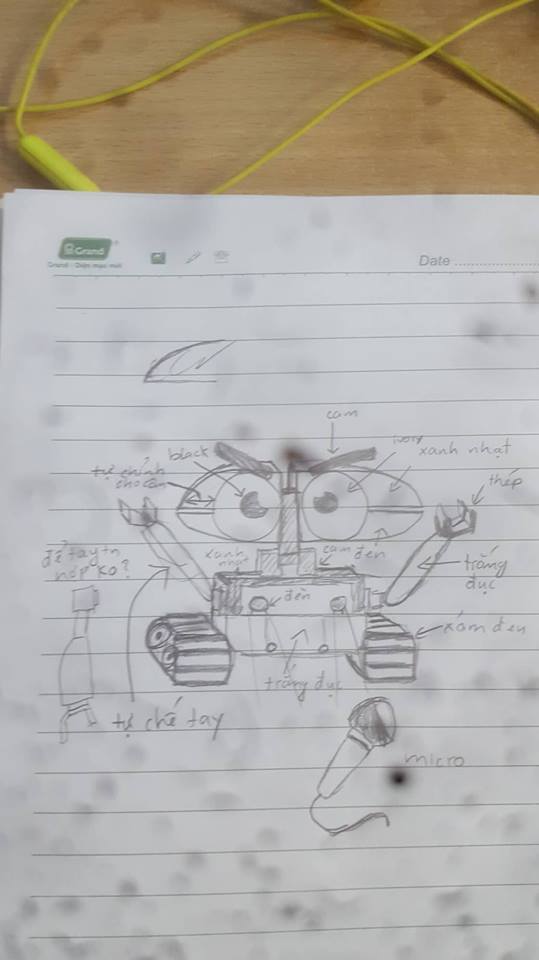 Grand
Grand - Diện mạo mới
Date
cam
black
ivory
xanh nhạt
tự chỉnh
thép
để tay tn
nớp ko?
xanh
nhạt
cam
đen
trắng
đục
đèn
xám đen
trắng đục
tự chế tay
micro